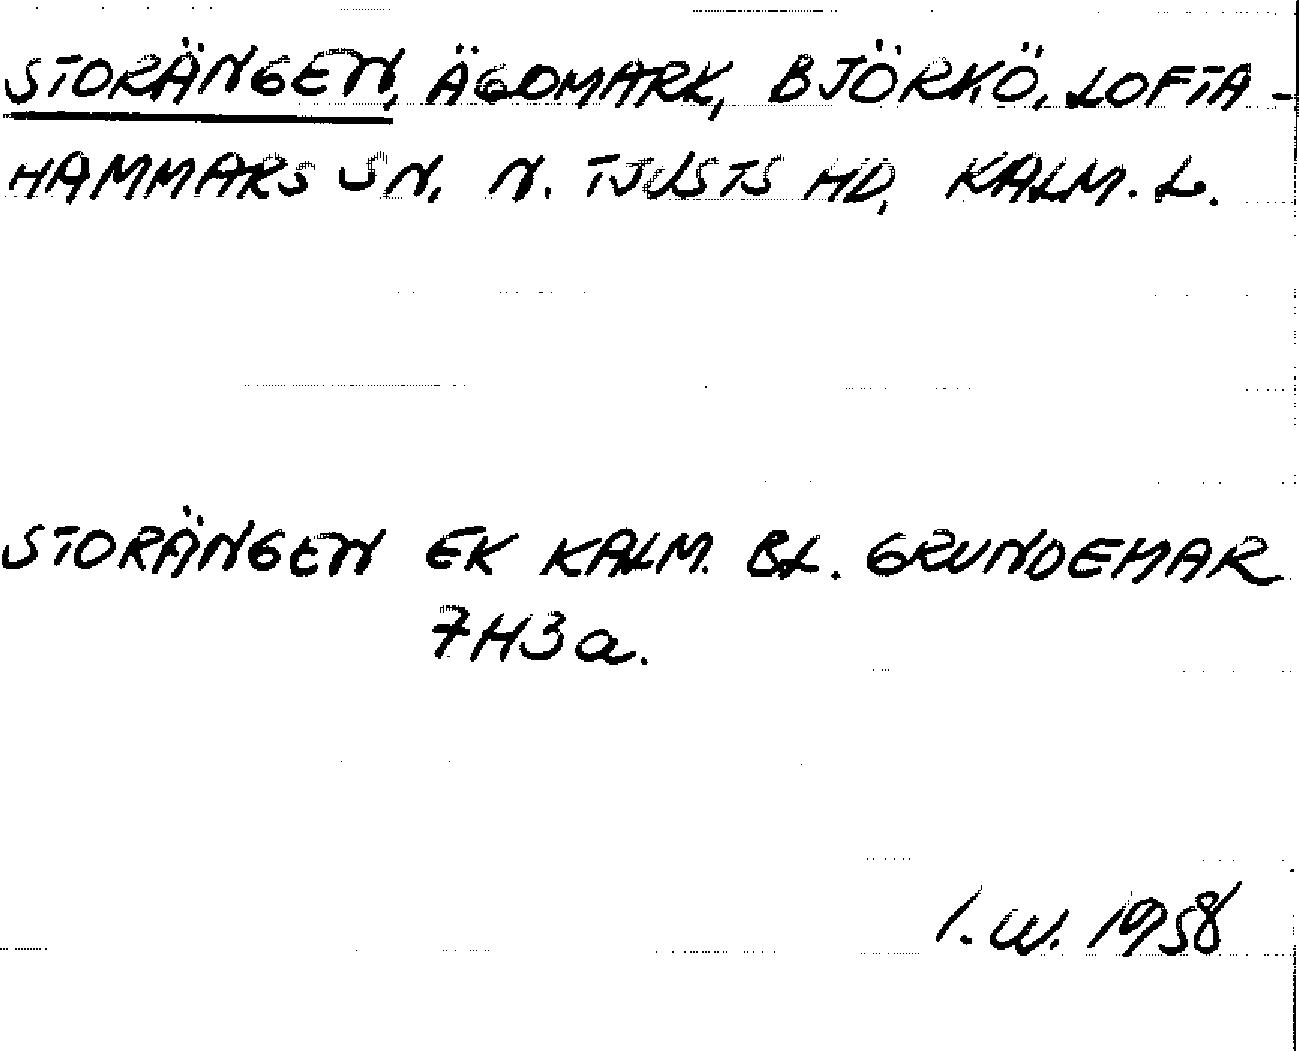 STORÄNGEN, ÄGOMARK, BJÖRKÖ, LOFTA-
HAMMARS SN, N. TJUSTS HD, KALM. L.
STORÄNGEN EK KALM. BL. GRUNDEMAR
7H3a.
I.W. 1958